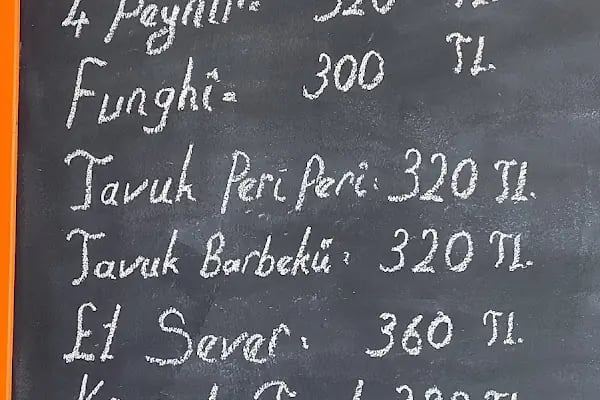 4 Peynirli: 320 TL
Funghi= 300 TL
Tavuk Peri Peri: 320 TL.
Tavuk Barbekü: 320 TL.
Et Sever: 360 TL.
TL